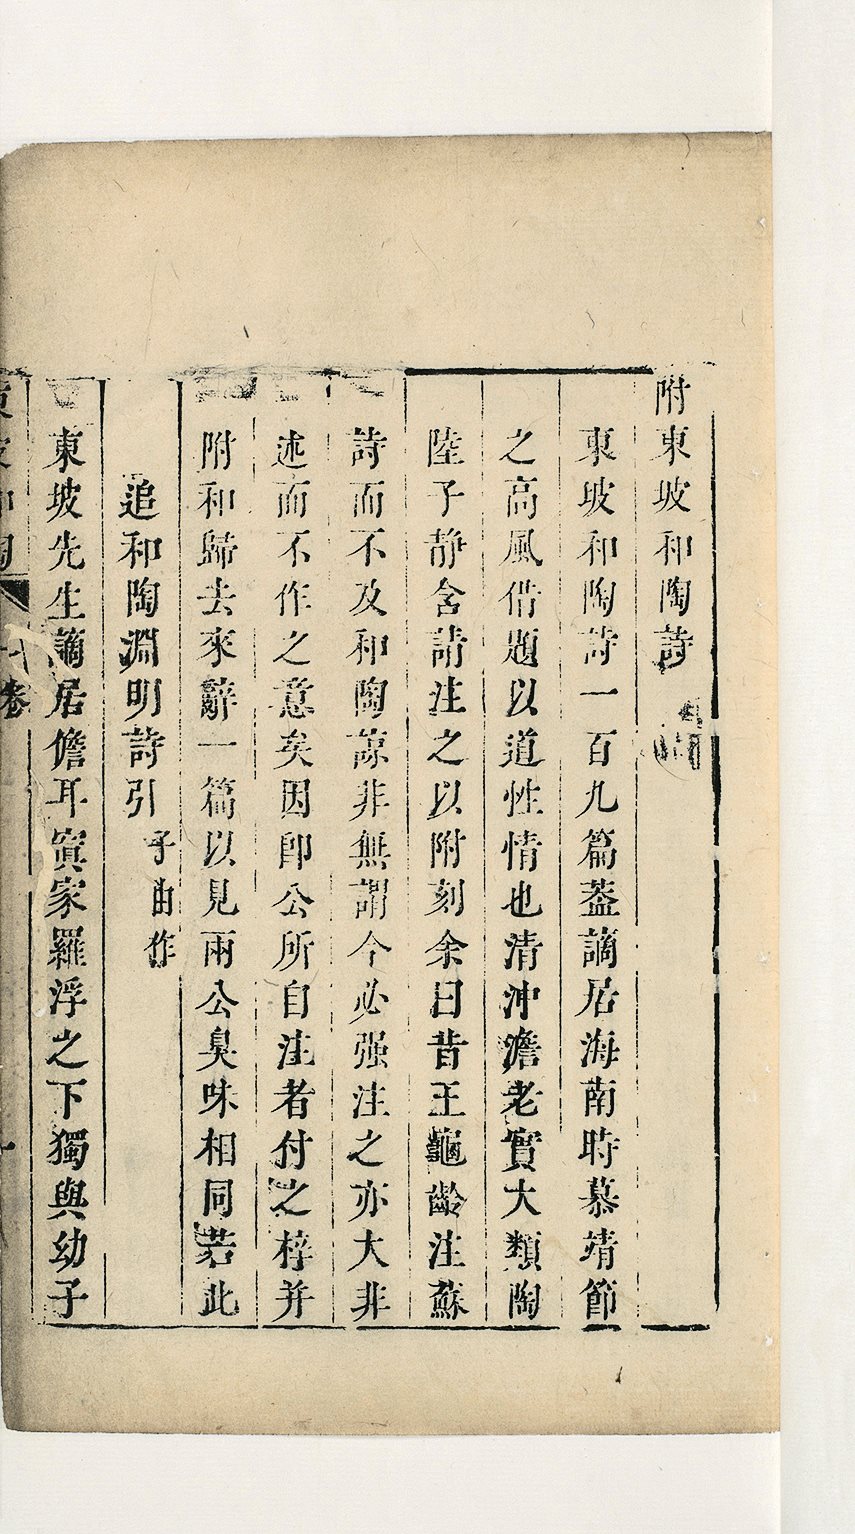 附東坡和陶詩
東坡和陶詩一百九篇蓋謫居海南時慕靖節
之高風借題以道性情也清沖澹老實大類陶
陸子靜含請注之以附刻余曰昔王龜齡注蘇
詩而不及和陶諒非無謂今必强注之亦大非
述而不作之意矣因卽公所自注者付之梓并
附和歸去來辭一篇以見兩公臭味相同若此
追和陶淵明詩引 子由作
東坡先生謫居儋耳寘家羅浮之下獨與幼子